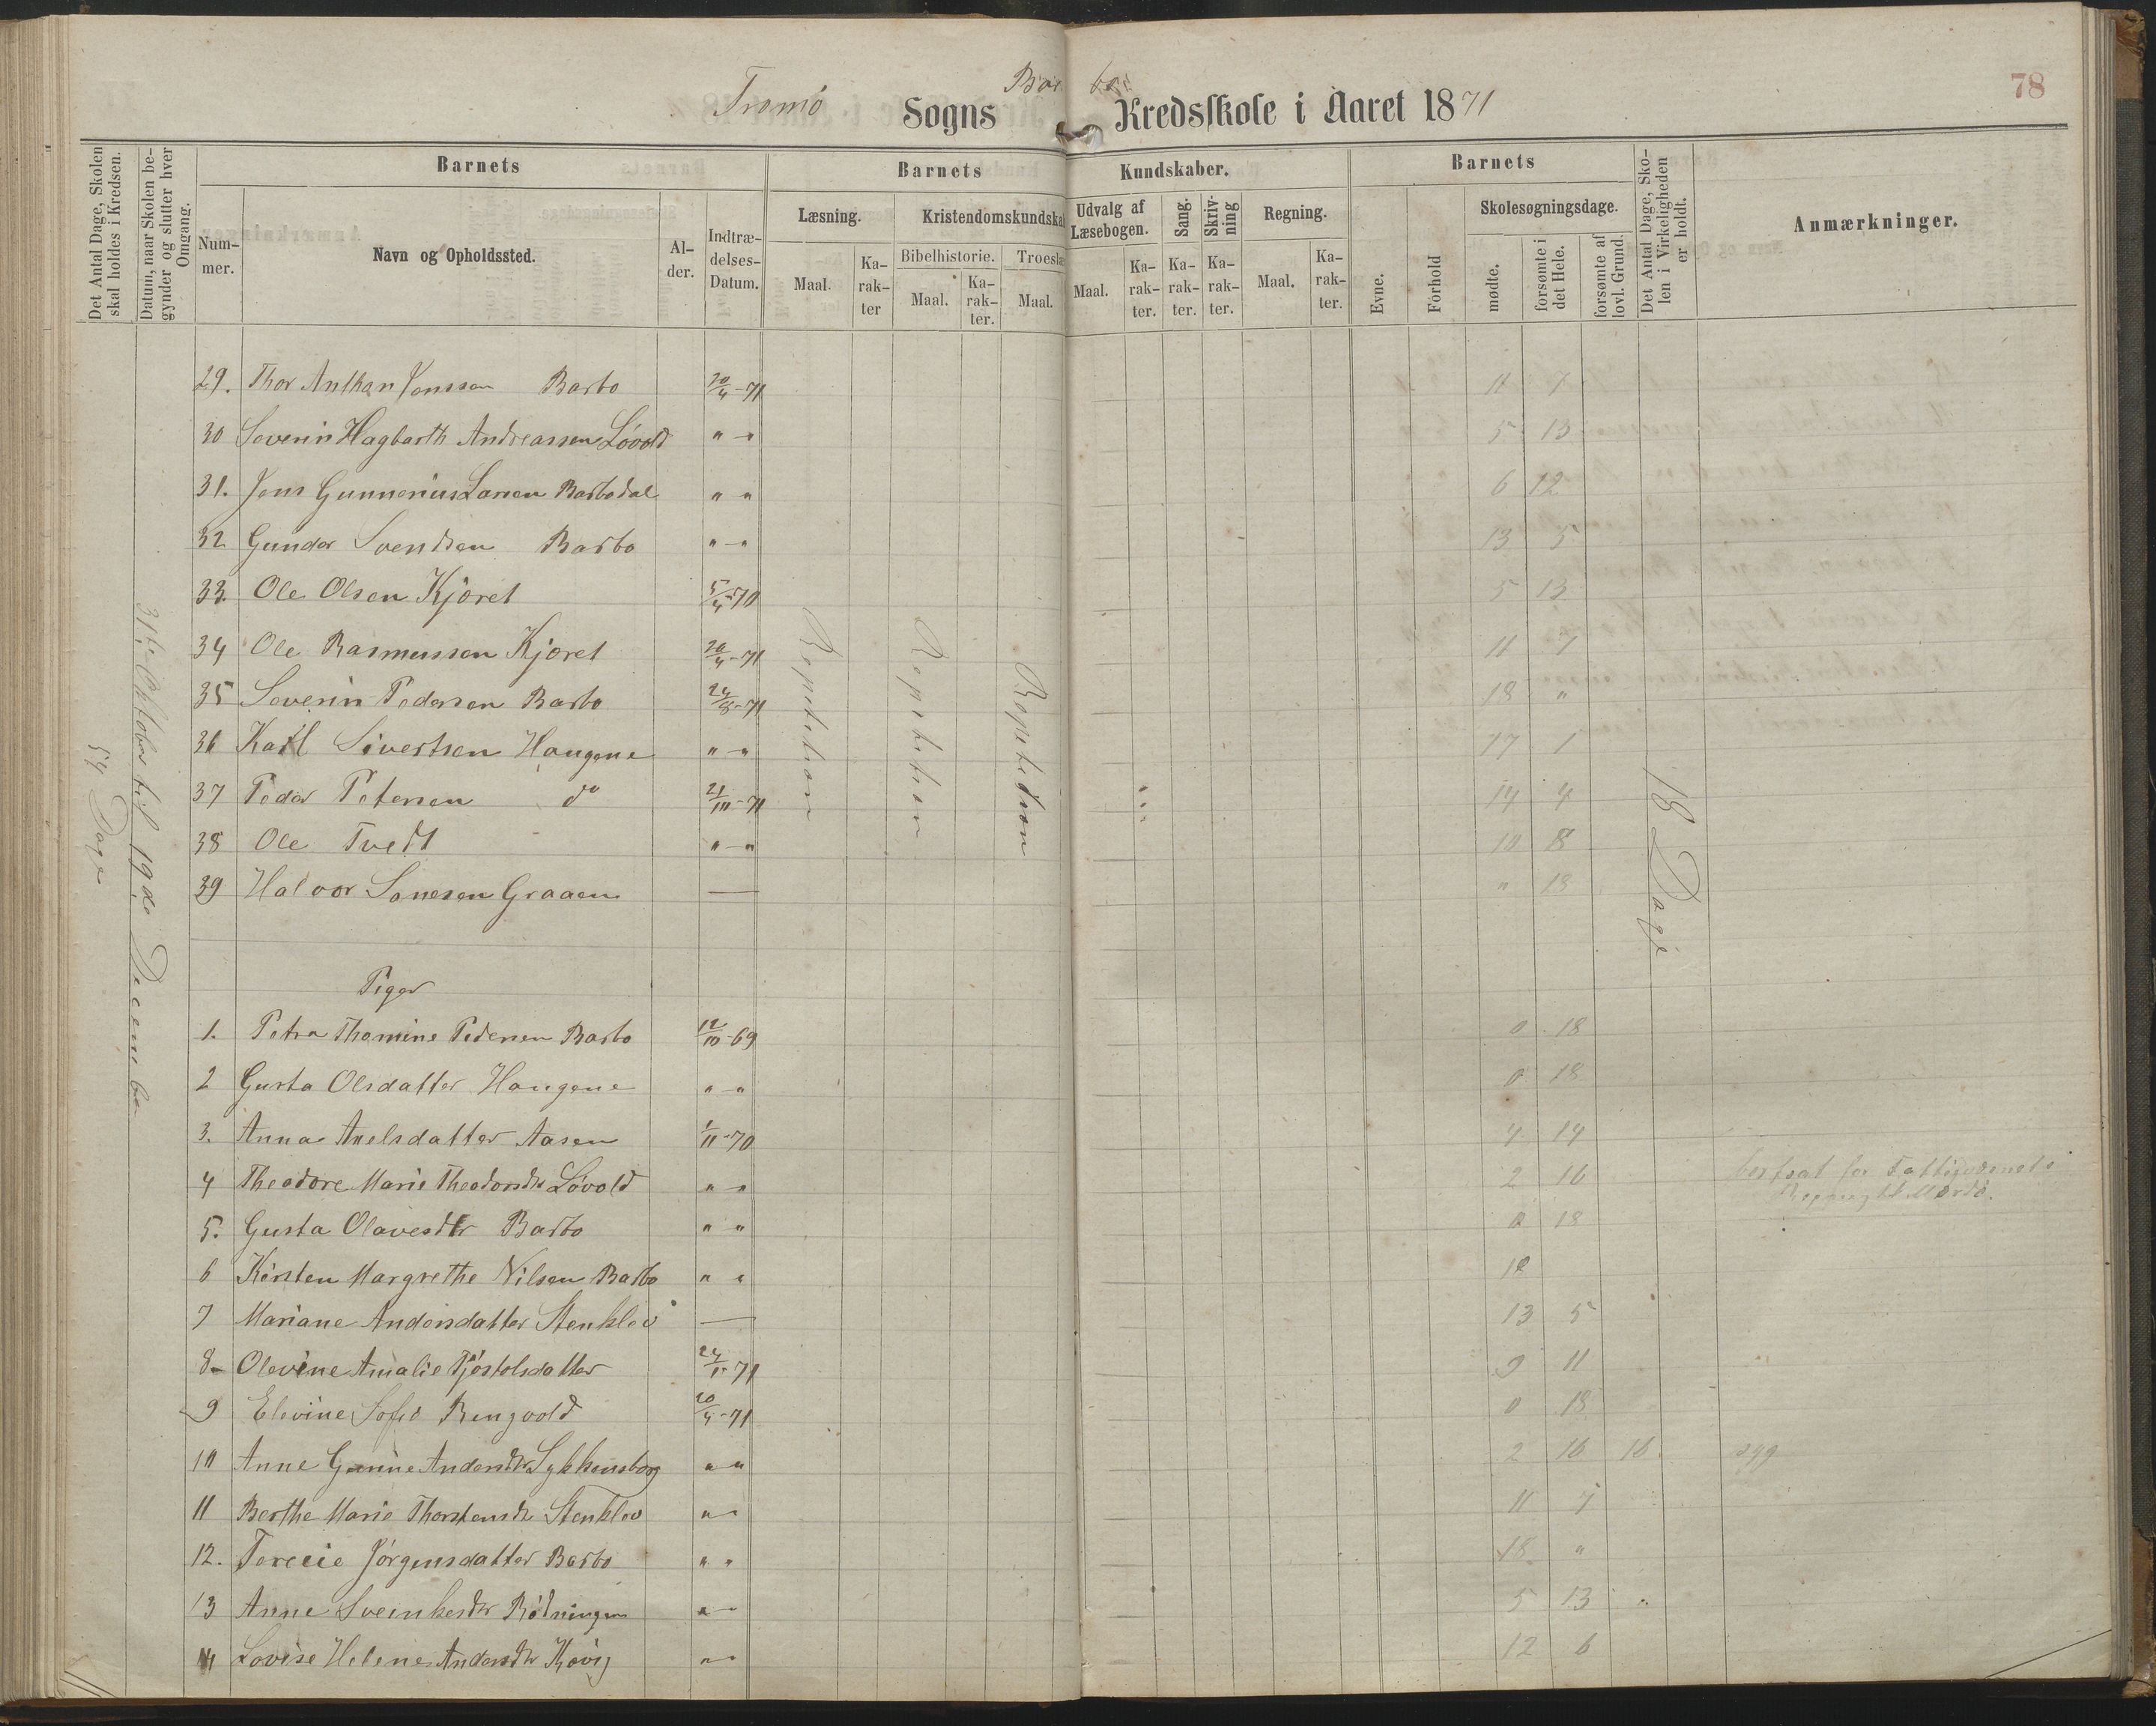 78
Tromö Sogns Barbo Kredsskole i Aaret 1871
Det Antal Dage, Skolen skal holdes i Kredsen.
Datum, naar Skolen begynder og slutter hver Omgang.
Barnets
Nummer.
Navn og Opholdssted.
Alder.
Indtrædelses-Datum.
Barnets Kundskaber.
Læsning.
Maal.
Karakter
Kristendomskundska
Bibelhistorie.
Maal.
Karakter.
Troeslæ
Maal.
Udvalg af Læsebogen.
Maal.
Karakter.
Sang.
Karakter.
Skrivning
Karakter.
Regning.
Maal.
Karakter.
Barnets
Evne.
Forhold
Skolesøgningsdage.
mødte.
forsømte i det Hele.
forsømte af lovl. Grund.
Det Antal Dage, Skolen i Virkeligheden er holdt.
Anmærkninger.
54 Dage
31te Oktober til 19de December
Repetition
Repetition
Repetition
18 Dage
29. Thor Anthon Jonssen Barbo 20/4-71 11 7
30 Severin Hagbarth Andreassen Lövold " " 5 13
31. Jens Gunnerius Larsen Barbodal " " 6 12
32 Gunder Svendsen Barbo " " 13 5
33. Ole Olsen Kjöret 5/4-70 5 13
34 Ole Rasmussen Kjöret 20/4-71 11 7
35 Severin Pedersen Barbo 24/8-71 18 "
36 Karl Sivertsen Haugene " " 17 1
37 Peder Petersen do 21/10-71 14 4
38 Ole Tvedt " " 10 8
39 Halvor Sonesen Graaen — " 18
Piger
1. Petra Thomine Pedersen Barbo 12/10-69 0 18
2 Gusta Olsdatter Haugene " " 0 18
3. Anna Axelsdatter Aasen 1/11-70 4 14
4 Theodore Marie Theodorsdtr Lövold " " 2 16 bortsat for Fattigvæsnets
5. Gusta Olavesdtr Barbo " " 0 18
6 Kirsten Margrethe Nilsen Barbo " "
7 Mariane Andersdatter Stenklev — 13 5
8 Olevine Amalie Tjöstolsdatter 24/1-71 9 11
9 Elevine Sofie Rengvold 20/4-71 0 18
10 Anne Gunine Andersdtr Lykkensborg " " 2 16 16 syg
11 Berthe Marie Thorstensdtr Stenklev " " 11 7
12. Terecie Jörgensdatter Barbo " " 18 "
13 Anne Sveinkesdtr Rödningen " " 5 13 "
14 Lovise Helene Andersdtr Kövig " " 12 6